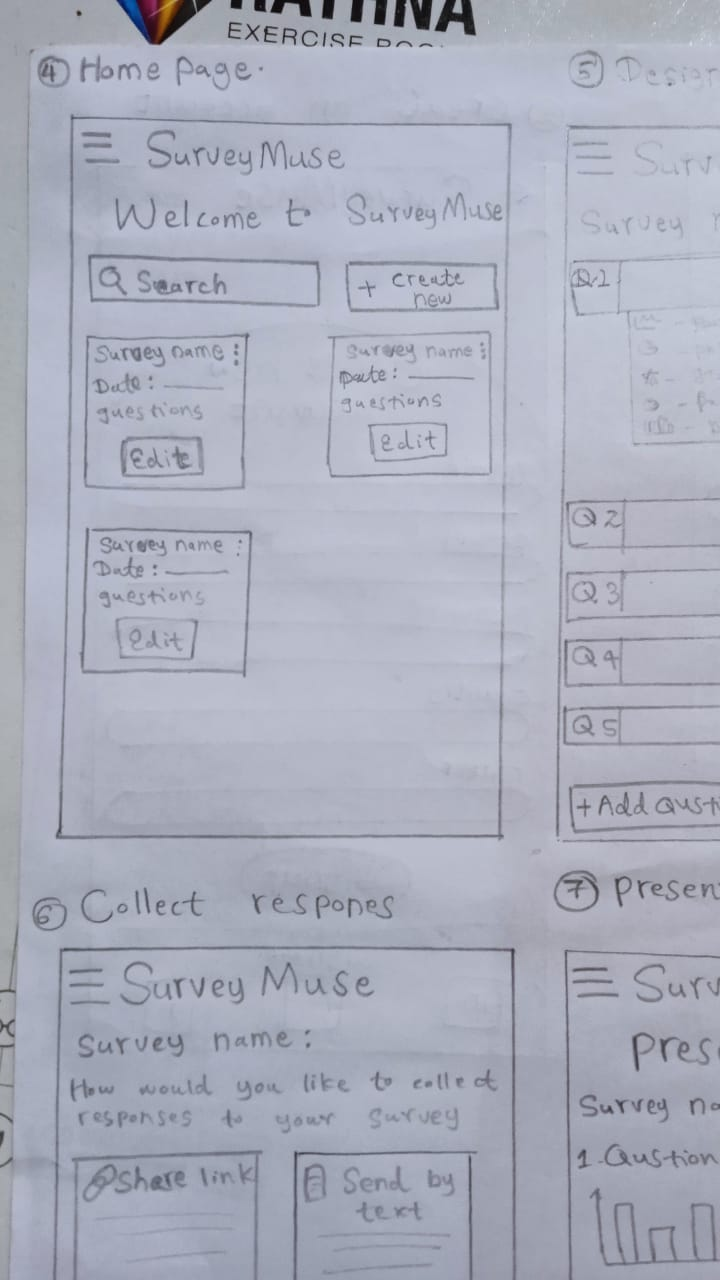 RATHNA
EXERCISE BOO
④ Home page.
☰ SurveyMuse
Welcome to SurveyMuse
Search
+ create
new
Survey name :
Date : ____
questions
Edit
Survey name :
Date : ____
questions
Edit
Survey name :
Date : ____
questions
Edit
⑤ Design
☰ Surv
Survey n
Q.1
Q 2
Q 3
Q 4
Q 5
+Add Qusti
⑥ Collect respones
☰ Survey Muse
Survey name :
How would you like to collect
responses to your survey
Share link
Send by
text
⑦ presen
☰ Surv
pres
Survey na
1. Qustion